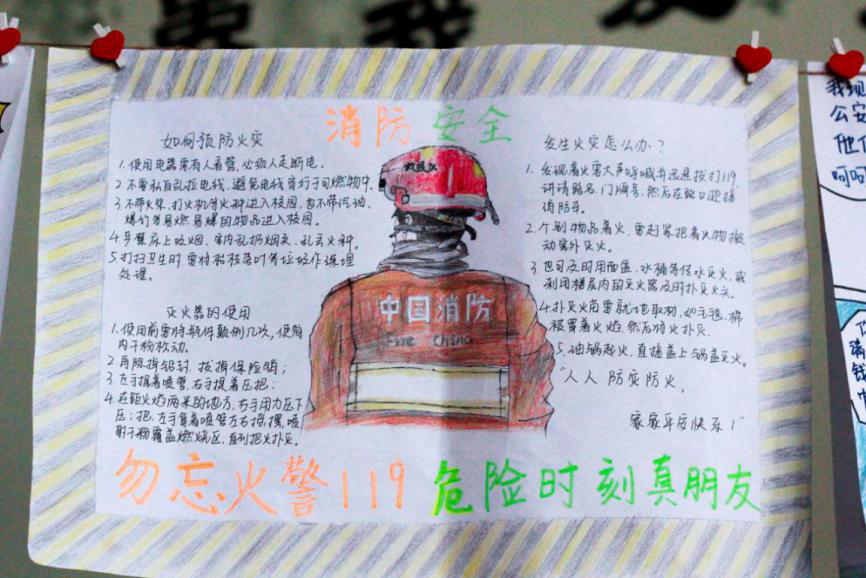 消防安全
如何预防火灾
1.使用电器要有人看管,必须人走断电。
2.不要私自乱拉电线,避免电线穿行于可燃物中。
3.不带火柴、打火机等火种进入校园,也不带汽油、
爆竹等易燃易爆的物品进入校园。
4.严禁床上吸烟、室内乱扔烟头、乱丢火种。
5.打扫卫生时要将枯枝落叶等垃圾作深埋
处理。
灭火器的使用
1.使用前要将瓶体颠倒几次,使筒
内干粉松动。
2.再除掉铅封,拔掉保险销;
3.左手握着喷管,右手提着压把;
4.在距火焰两米的地方,右手用力压下
压把,左手拿着喷管左右摇摆,喷
射干粉覆盖燃烧区,直到把火扑灭。
救援队
中国消防
Fire China
发生火灾怎么办?
1.发现着火要大声呼喊并迅速拨打119,
讲清路名、门牌号,然后在路口迎接
消防车。
2.个别物品着火,要赶紧把着火物搬
动室外灭火。
3.也可及时用面盆、水桶等传水灭火,或
利用楼层内的灭火器及时扑灭火头。
4.扑灭火苗要就地取材,如毛毯、棉
被罩着火焰,然后将火扑灭。
5.油锅起火,直接盖上锅盖灭火。
"人人防灾防火,
家家平安快乐!"
勿忘火警119 危险时刻真朋友
我现
公安
他们
呵呵